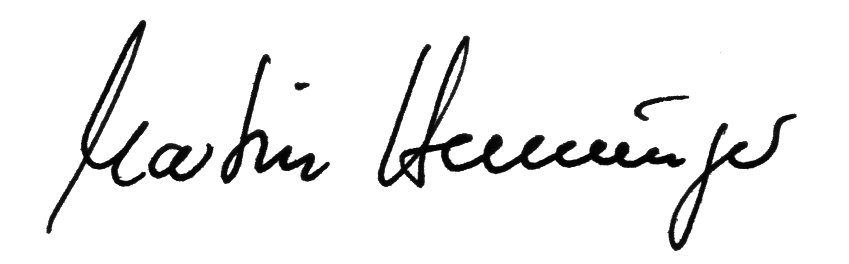 Martin Henninger